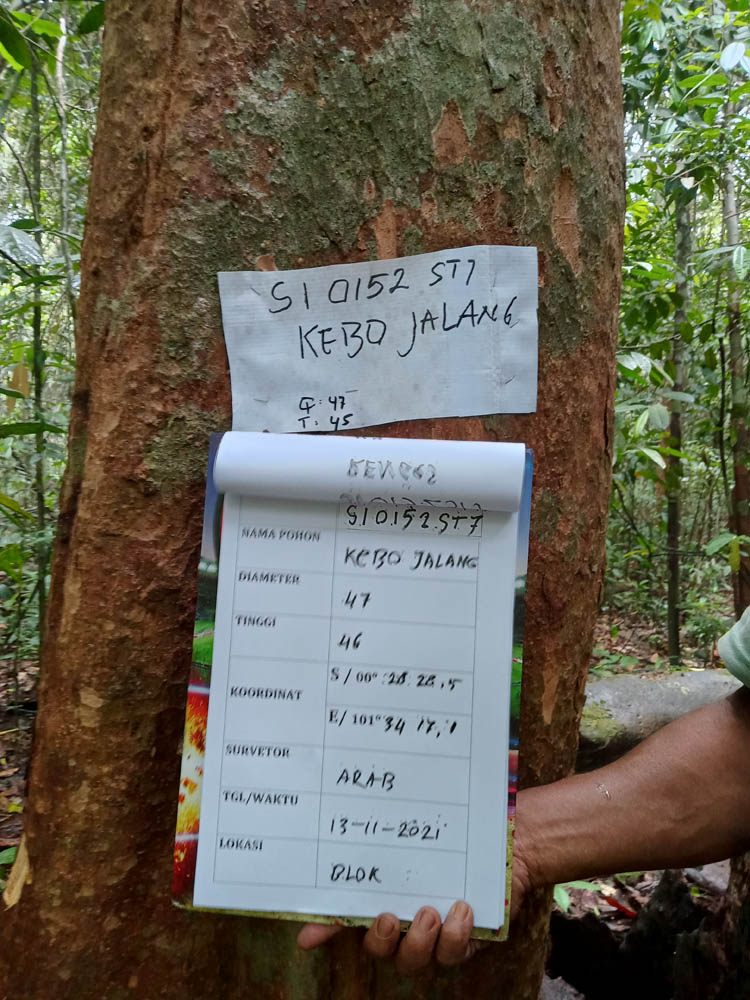 S1 0152 ST7
KEBO JALANG
T: 45
S10152.ST7
NAMA POHON KEBO JALANG
DIAMETER 47
TINGGI 46
KOORDINAT S / 00° 28 28,5
E/ 101° 34 17,1
SURVEYOR ARAB
TGL/WAKTU 13-11-2021
LOKASI BLOK